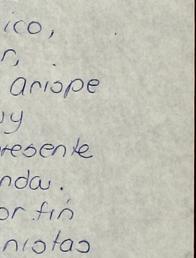 ico,
r,
ariope
uy
resente
nda.
or fin
nistas